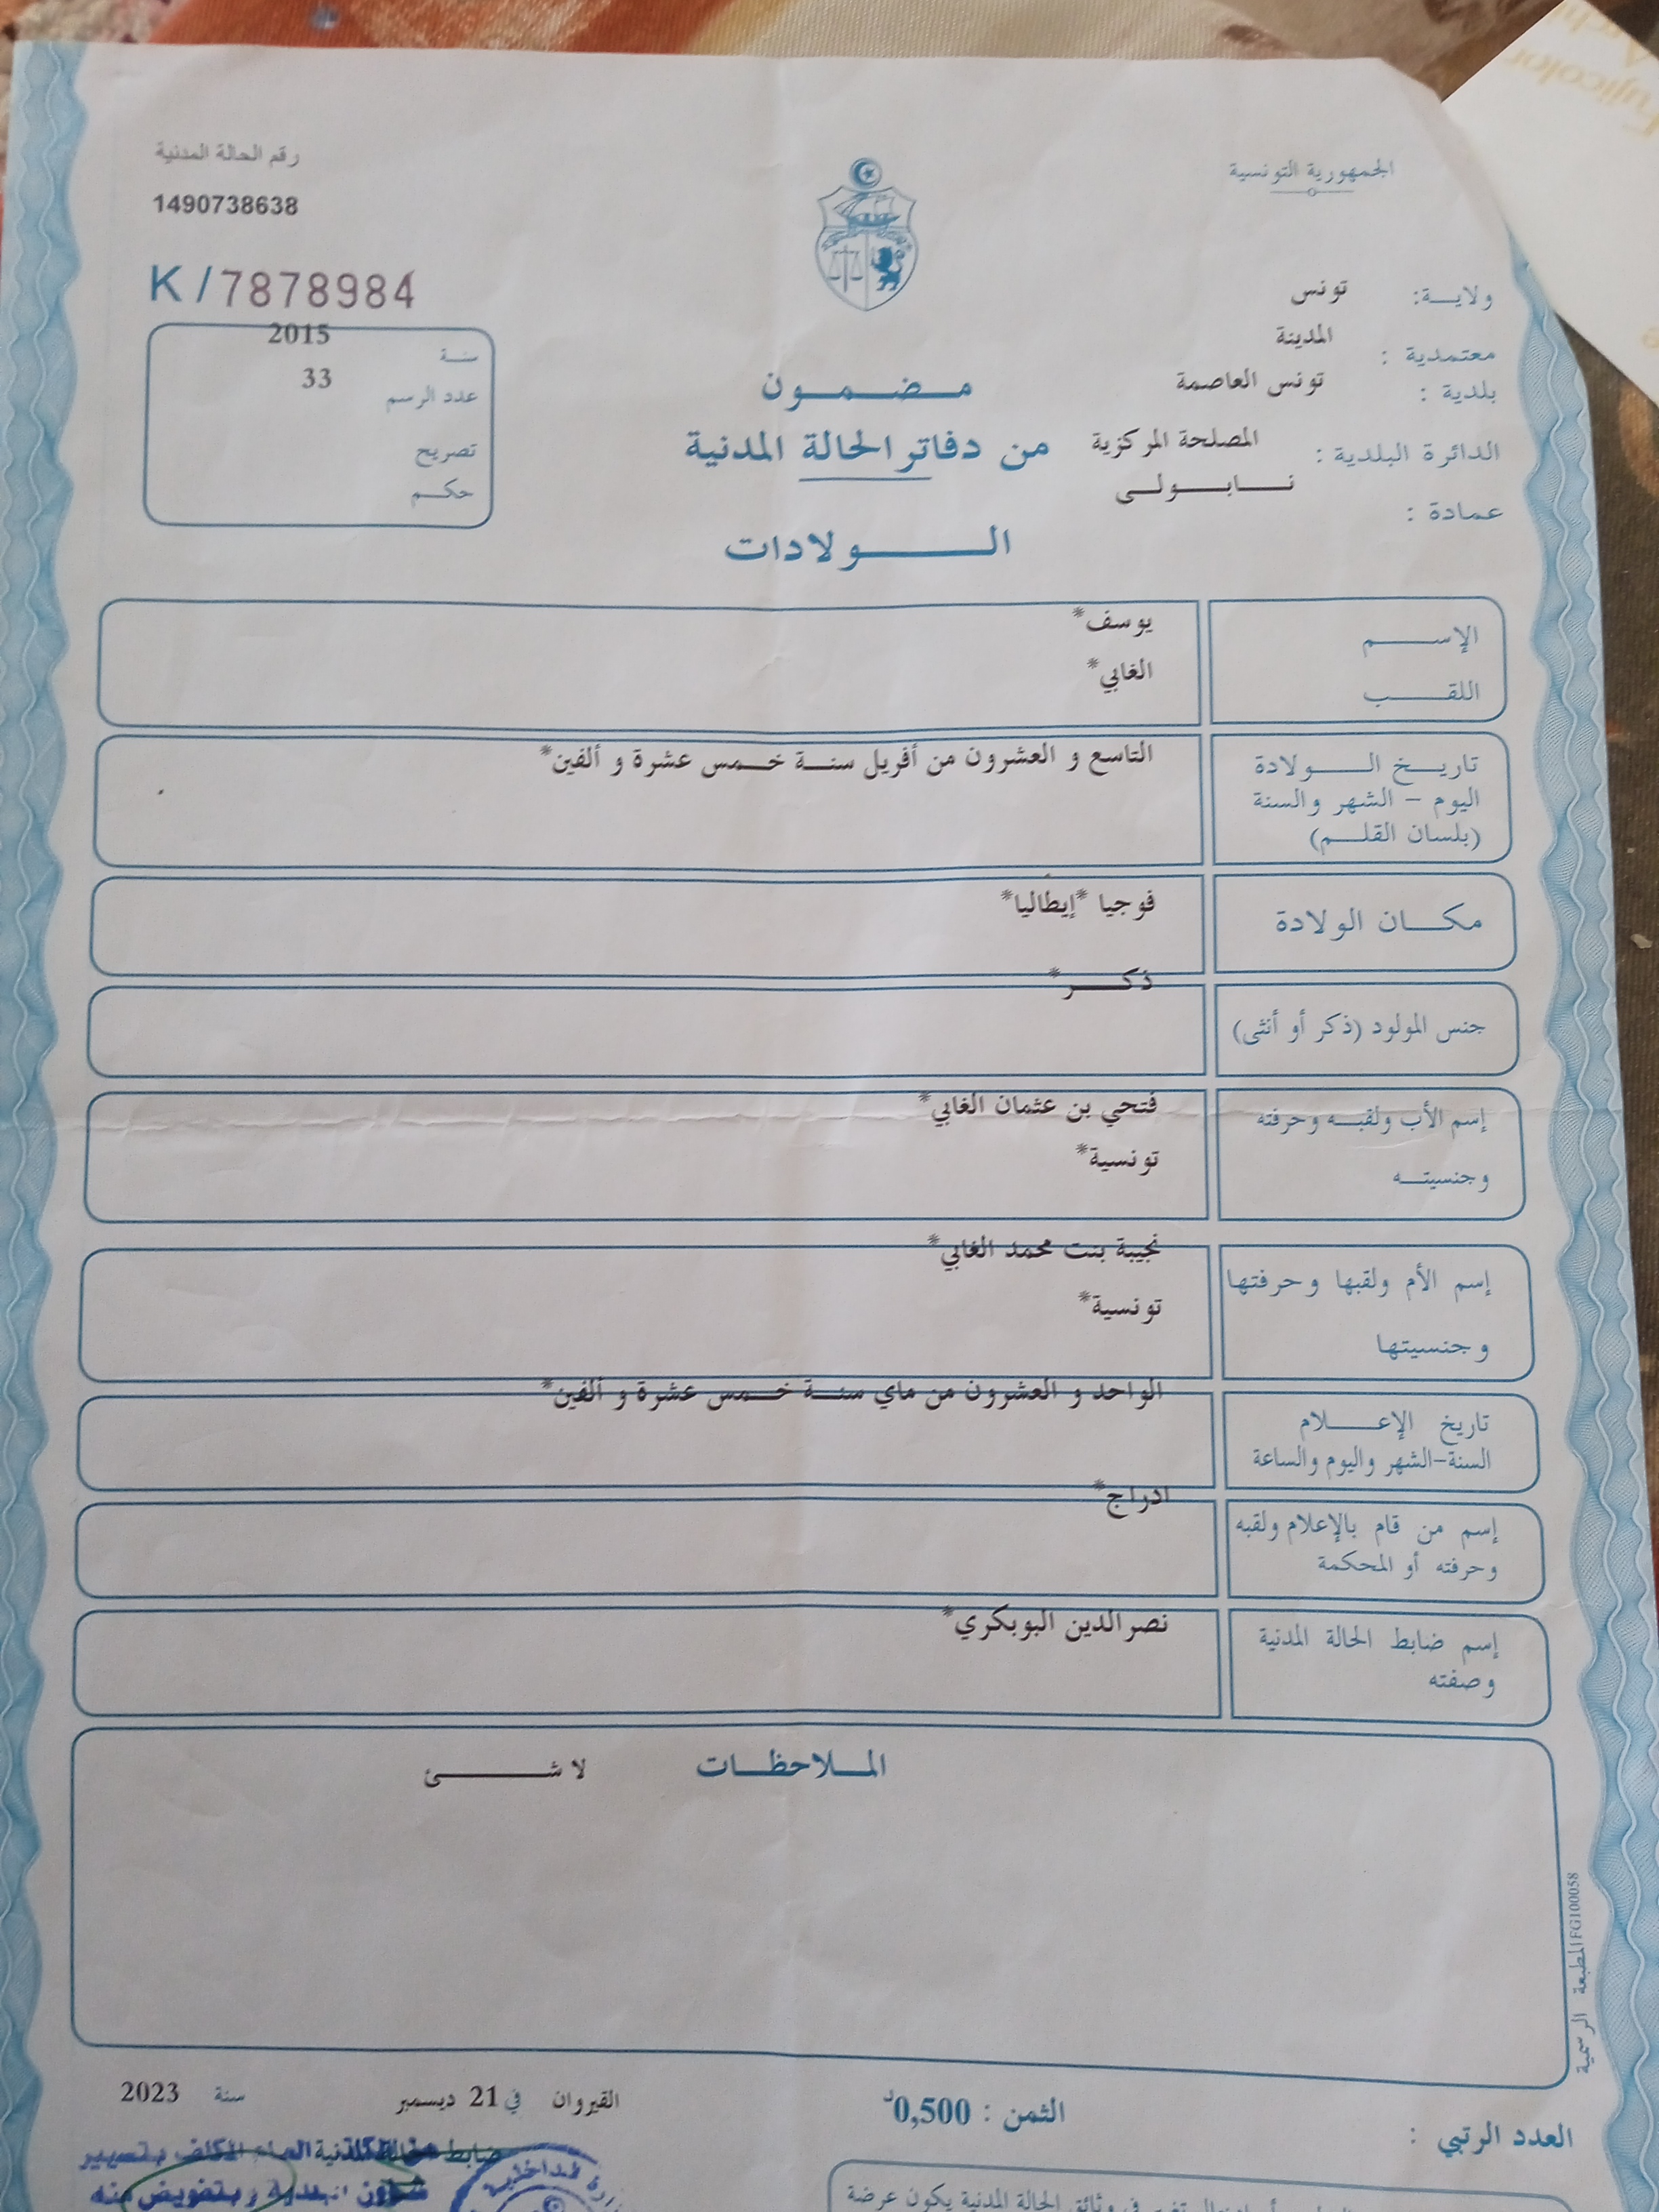 الجمهورية التونسية
رقم الحالة المدنية
1490738638
K/7878984
ولايــة: تونس
معتمدية : المدينة
بلدية : تونس العاصمة
الدائرة البلدية : المصلحة المركزية
نــابــولــى
عمادة :
سنة 2015
عدد الرسم 33
تصريح
حكم
مــضــمــون
من دفاتر الحالة المدنية
الــولادات
الإســـم يوسف*
اللقــب الغابي*
تاريــخ الــولادة التاسع و العشرون من أفريل سنة خمس عشرة و ألفين*
اليوم - الشهر والسنة
(بلسان القلــم)
مكــان الولادة فوجيا *إيطاليا*
جنس المولود (ذكر أو أنثى) ذكــر*
إسم الأب ولقبــه وحرفته فتحي بن عثمان الغابي*
وجنسيتــه تونسية*
إسم الأم ولقبها وحرفتها نجيبة بنت محمد الغابي*
وجنسيتها تونسية*
تاريخ الإعــلام الواحد و العشرون من ماي سنة خمس عشرة و ألفين*
السنة-الشهر واليوم والساعة
إسم من قام بالإعلام ولقبه ادراج*
وحرفته أو المحكمة
إسم ضابط الحالة المدنية نصرالدين البوبكري*
وصفته
المــلاحظــات لا شــئ
المطبعة الرسمية FG100058
القيروان في 21 ديسمبر سنة 2023
الثمن : 0,500د
العدد الرتبي :
ضابط الحالة المدنية العام المكلف بتسيير
شؤون البلدية وبتفويض منه
في وثائق الحالة المدنية يكون عرضة